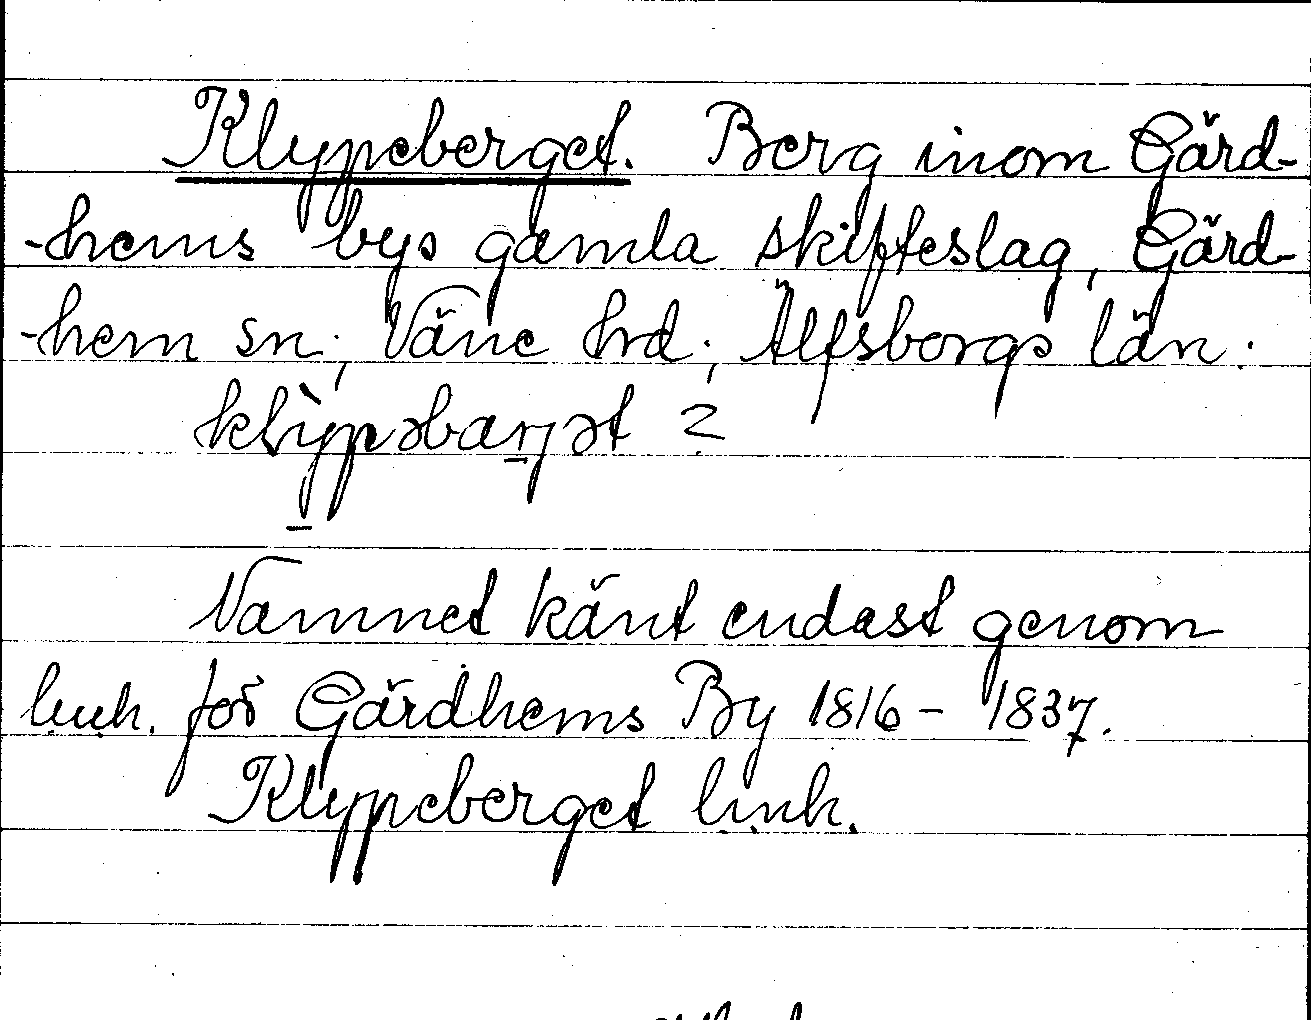 Klypeberget. Berg inom Gärd-
-hems bys gamla skifteslag, Gärd-
-hem sn, Väne hrd, Älfsborgs län.
klỳpəbarjət ?
Namnet känt endast genom
l.u.h. för Gärdhems By 1816 - 1837.
Klypeberget l.u.h.